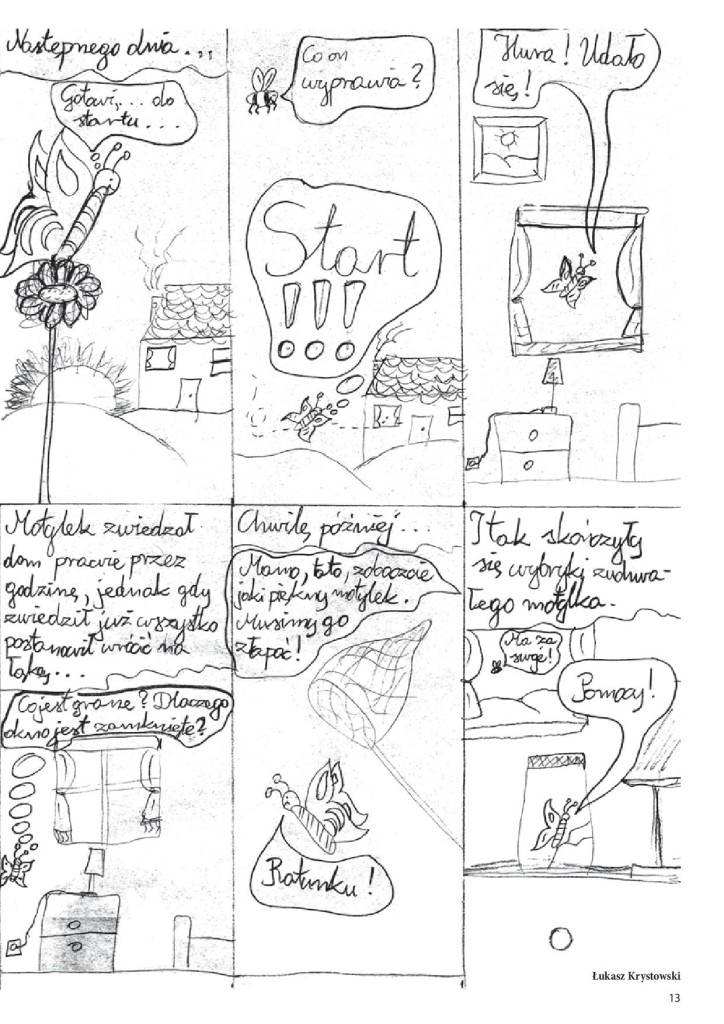 Następnego dnia...
Gotowi,... do
startu...
Co on
wyprawia?
Start
!!!
Hura! Udało
się!
Motylek zwiedzał
dom prawie przez
godzinę, jednak gdy
zwiedził już wszystko
postanowił wrócić na
łąkę...
Co jest grane? Dlaczego
okno jest zamknięte?
Chwilę później...
Mamo, tato, zobaczcie
jaki piękny motylek.
Musimy go
złapać!
Ratunku!
I tak skończyły
się wybryki zuchwa-
łego motylka.
Ma za
swoje!
Pomocy!
Łukasz Krystowski
13